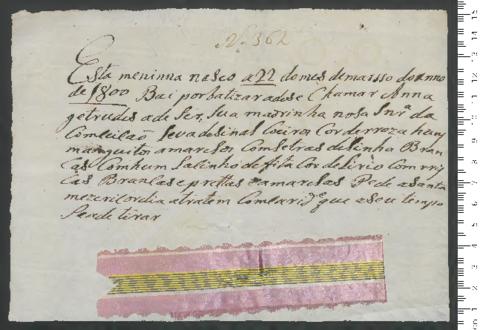 Nº 362
Esta meninna nasco a 22 do mes demarso do anno
de 1800 Bai porbatizar adese Chamar Anna
getrudes ade Ser, Sua madrinha nosa Snrª da
Comseisaõ leva de sinal Coeiro Cor derroza huns
manguitos amarelos Com Letras de linha Bran
cas Com hum Lacinho de fita Cor de Lirio Com
Brancas e prettas e amarelas Pede a Santa
mezericordia a tratem Com que aseu tempo
Seade tirar